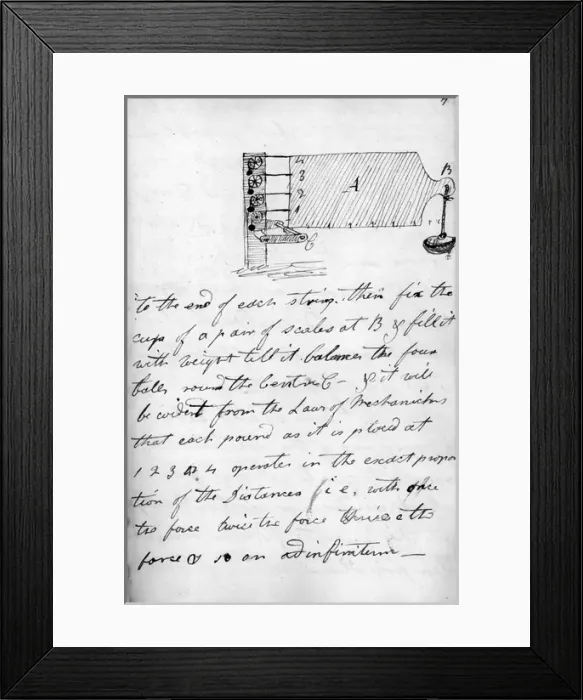 7
4
3
2
1
A
B
C
to the end of each string. then fix the
cup of a pair of scales at B & fill it
with weight till it balances the four
balls round the Centre C - & it will
be evident from the Laws of Mechanicks
that each pound as it is placed at
1 2 3 or 4 operates in the exact propor
tion of the Distances (i e, with once
the force twice the force thrice the
force & so on ad infinitum —